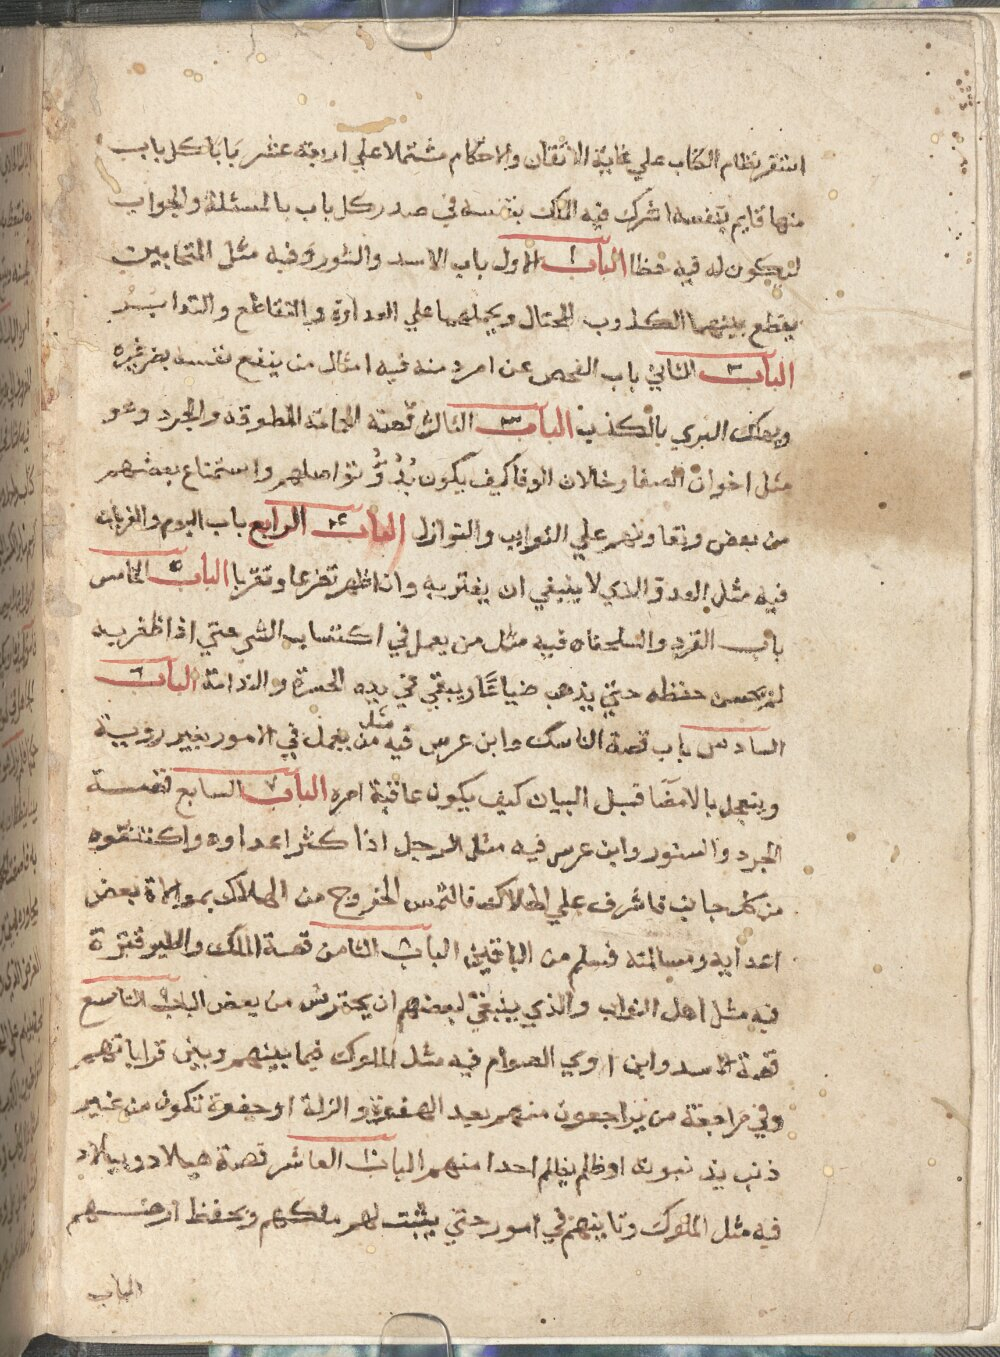 استقر نظام الكتاب علي غاية الاتقان والاحكام مشتملا علي اربعة عشر بابا كل باب
منها قايم بنفسه اشرك فيه الملك بنفسه في صدر كل باب بالمسئلة والجواب
ليكون له فيه حظا الباب ١ الاول باب الاسد والثور وفيه مثل المتحابين
يقطع بينهما الكذوب المحتال ويحملهما علي العداوة والتقاطع والتدابر
الباب ٢ الثاني باب الفحص عن امر دمنه فيه امثال من ينفع نفسه بضر غيره
ويهلك البري بالكذب الباب ٣ الثالث قصة الحمامة المطوقه والجرد وهو
مثل اخوان الصفا وخلان الوفا كيف يكون بدُوُّ تواصلهم واستمتاع بعضهم
من بعض وتعاونهم علي النوايب والنوازل الباب ٤ الرابع باب البوم والغربان
فيه مثل العدو الذي لا ينبغي ان يغتر به وان اظهر تضرعا وتقربا الباب ٥ الخامس
باب القرد والسلحفاه فيه مثل من يعمل في اكتساب الشي حتي اذا ظفر به
لم يحسن حفظه حتي يذهب ضياعًا ويبقي في يده الحسرة والندامة الباب ٦
السادس باب قصة الناسك وابن عرس فيه مثل من يعمل في الامور بغير روية
ويتعجل بالامضا قبل البيان كيف يكون عاقبة امره الباب ٧ السابع قصة
الجرد والسنور وابن عرس فيه مثل الرجل اذا كثر اعداوه واكتنفوه
من كل جانب فاشرف علي الهلاك فالتمس الخروج من الهلاك بموالاة بعض
اعدايه ومسالمته فسلم من الباقين الباب ٨ الثامن قصة الملك والطير فنزة
فيه مثل اهل التراب والذي ينبغي لبعضهم ان يحترس من بعض الباب ٩ التاسع
قصة الاسد وابن اوي الصوام فيه مثل الملوك فيما بينهم وبين قراباتهم
وفي مراجعة من يراجعون منهم بعد الهفوة والزلة او جفوة تكون من غير
ذنب يذنبونه او ظلم يظلم احدا منهم الباب ١٠ العاشر قصة هيلاد وبيلاد
فيه مثل الملوك وتانيهم في امور حتي يثبت لهم ملكهم وتحفظ ارضهم
الباب